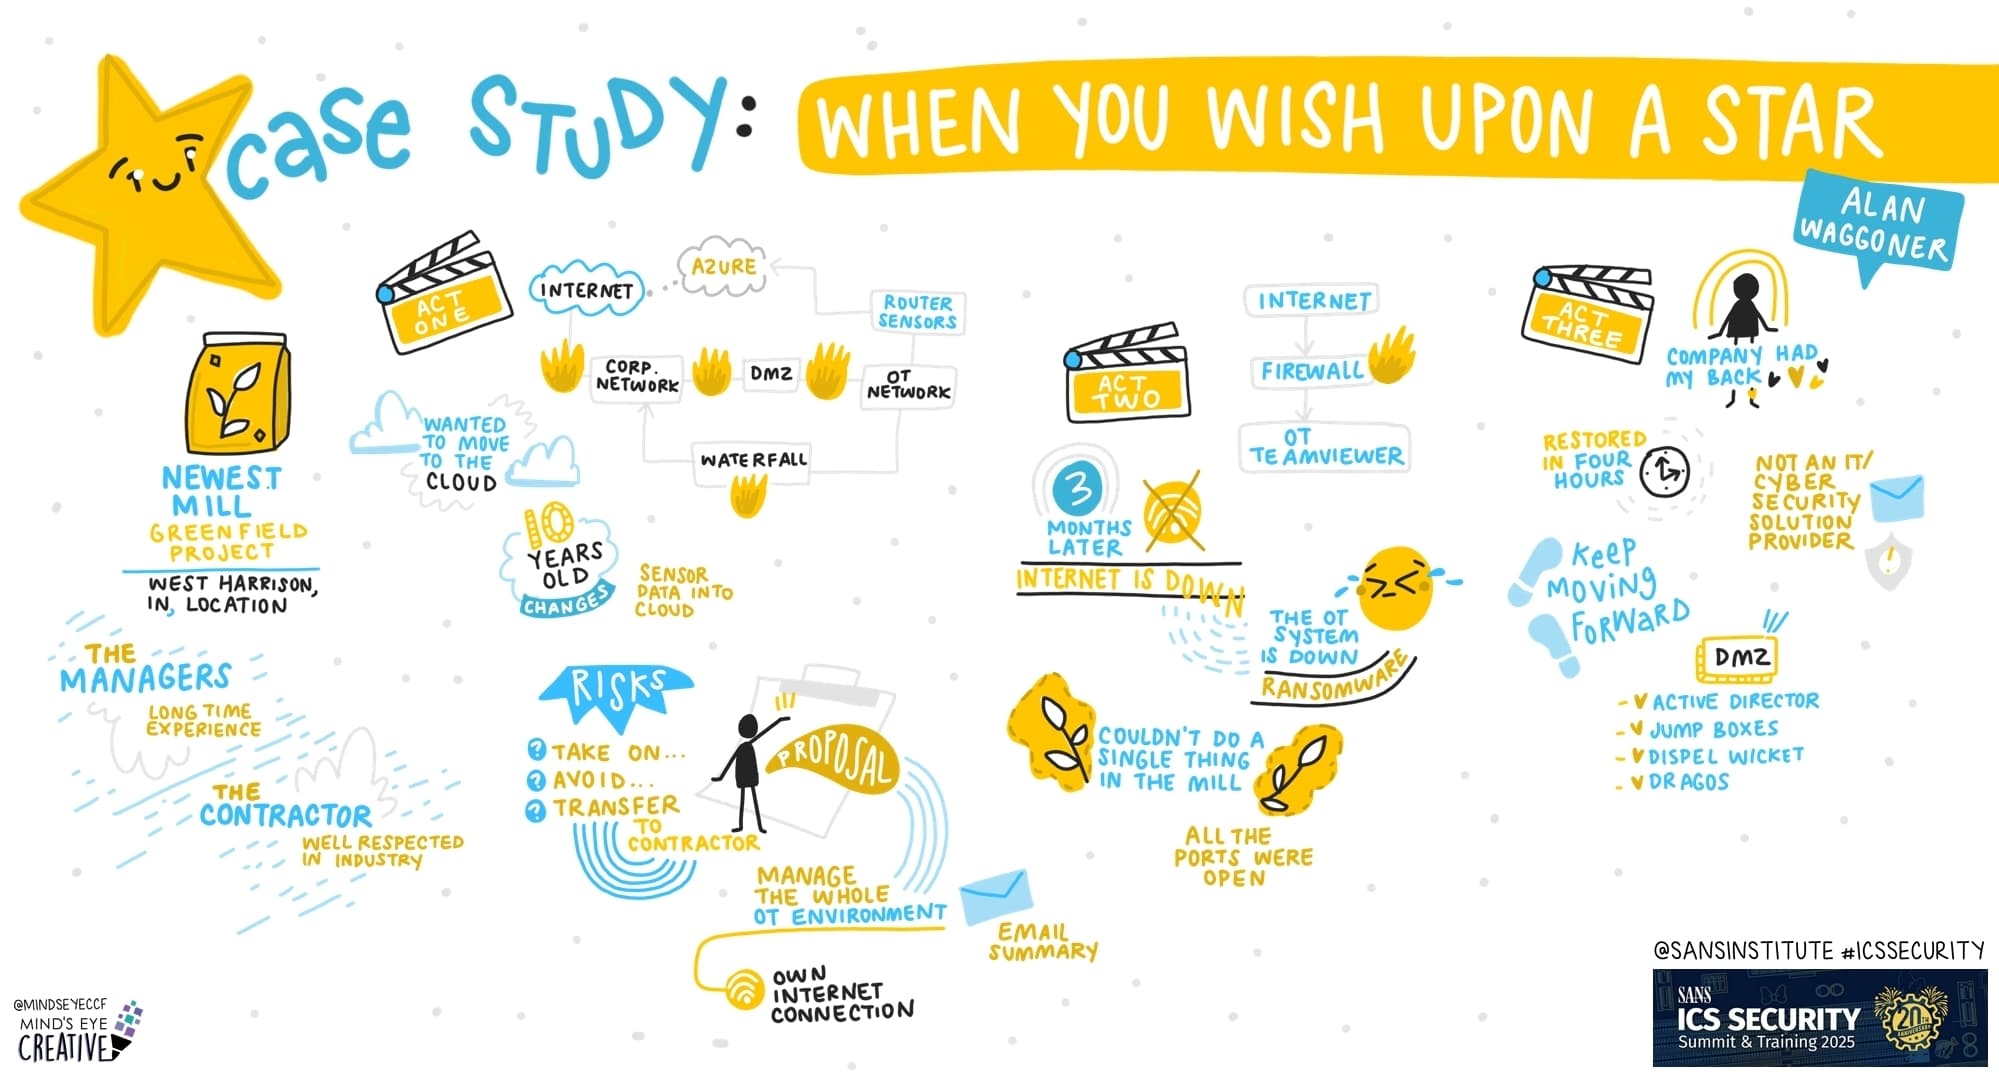 CASE STUDY:
WHEN YOU WISH UPON A STAR
ALAN
WAGGONER
NEWEST
MILL
GREENFIELD
PROJECT
WEST HARRISON,
IN, LOCATION
THE
MANAGERS
LONG TIME
EXPERIENCE
THE
CONTRACTOR
WELL RESPECTED
IN INDUSTRY
ACT
ONE
INTERNET
AZURE
ROUTER
SENSORS
CORP.
NETWORK
DMZ
OT
NETWORK
WATERFALL
WANTED
TO MOVE
TO THE
CLOUD
10
YEARS
OLD
CHANGES
SENSOR
DATA INTO
CLOUD
RISKS
? TAKE ON...
? AVOID...
? TRANSFER
TO
CONTRACTOR
PROPOSAL
MANAGE
THE WHOLE
OT ENVIRONMENT
OWN
INTERNET
CONNECTION
EMAIL
SUMMARY
ACT
TWO
INTERNET
FIREWALL
OT
TEAMVIEWER
3
MONTHS
LATER
INTERNET IS DOWN
THE OT
SYSTEM
IS DOWN
RANSOMWARE
COULDN'T DO A
SINGLE THING
IN THE MILL
ALL THE
PORTS WERE
OPEN
ACT
THREE
COMPANY HAD
MY BACK
RESTORED
IN FOUR
HOURS
NOT AN IT/
CYBER
SECURITY
SOLUTION
PROVIDER
KEEP
MOVING
FORWARD
DMZ
- ACTIVE DIRECTOR
- JUMP BOXES
- DISPEL WICKET
- DRAGOS
@SANSINSTITUTE #ICSSECURITY
SANS
ICS SECURITY
Summit & Training 2025
20TH
ANNIVERSARY
@MINDSEYECCF
MIND'S EYE
CREATIVE